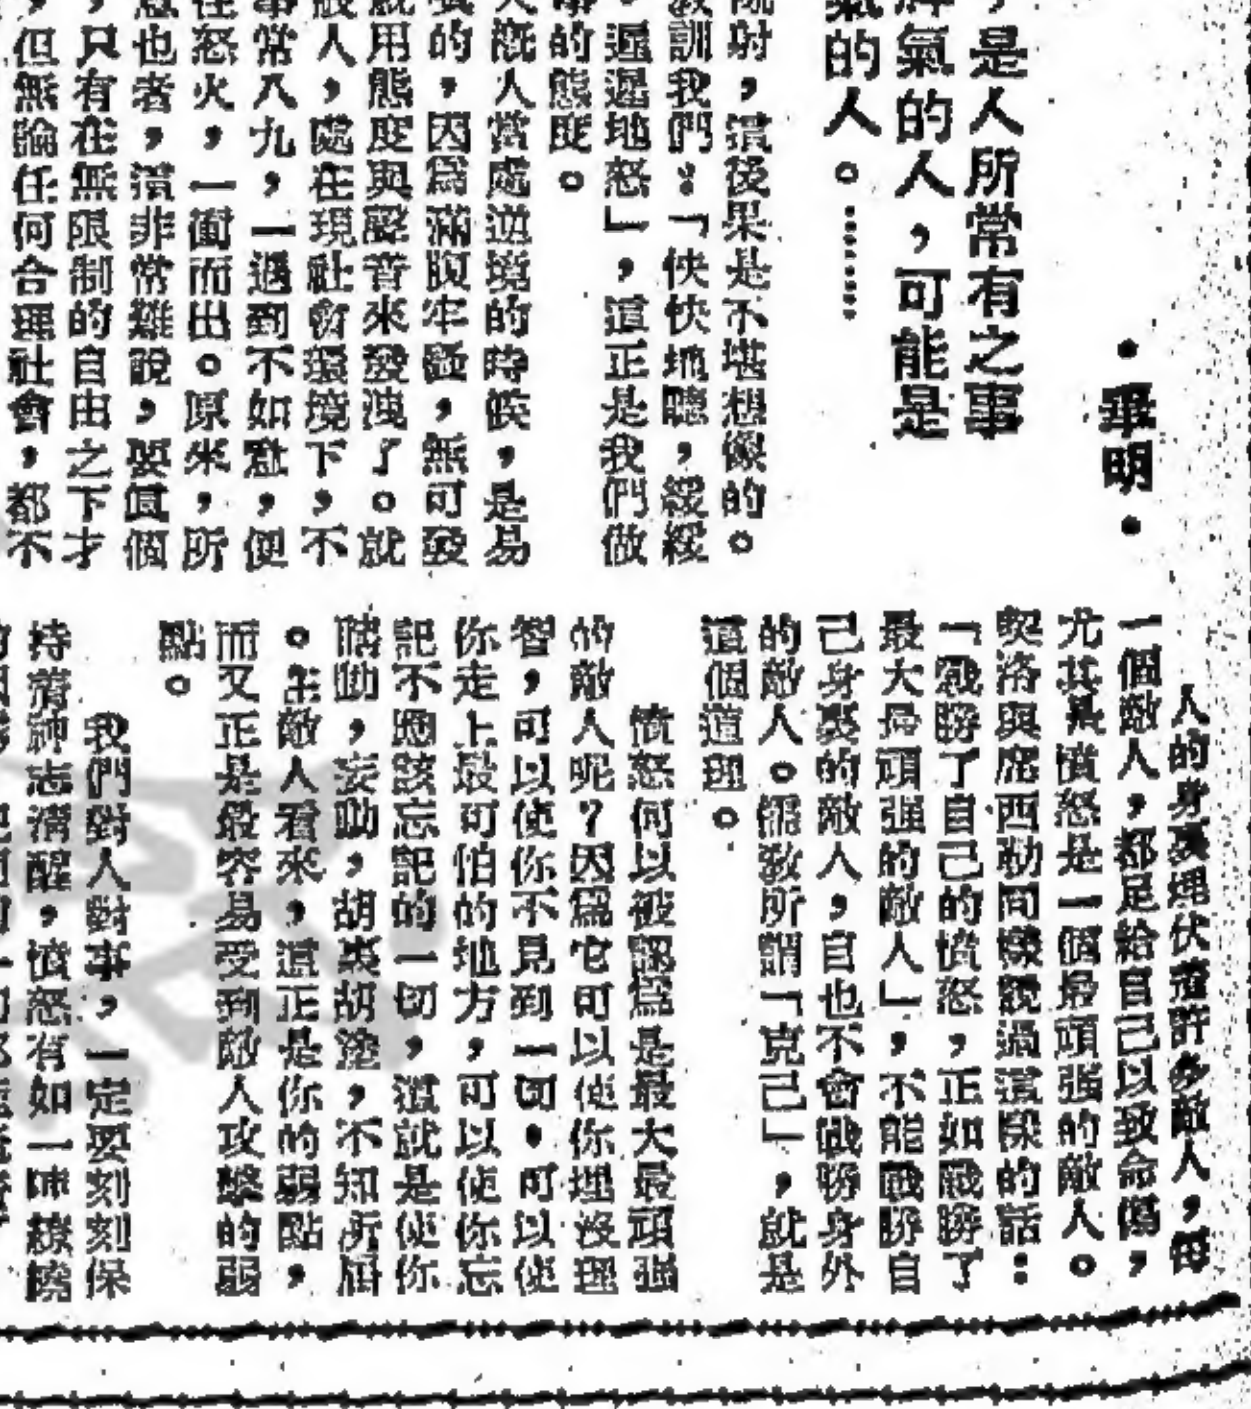 ，是人所常有之事
脾氣的人，可能是
氣的人。………
•畢明•
射，這後果是不堪想像的。
教訓我們：「快快地聽，緩緩
遲遲地怒」，這正是我們做
事的態度。
大概人當處逆境的時候，是易
的，因為滿腹牢騷，無可發
就用態度與聲音來發洩了。就
般人，處在現社會環境下，不
事常八九，一遇到不如意，便
在怒火，一衝而出。原來，所
意也者，這非常難說，要真個
，只有在無限制的自由之下才
，但無論任何合理社會，都不
人的身裏埋伏着許多敵人，每
一個敵人，都足給自己以致命傷，
尤其是憤怒是一個最頑強的敵人。
契洛與席西勒同樣說過這樣的話：
「戰勝了自己的憤怒，正如戰勝了
最大最頑强的敵人」，不能戰勝自
己身裏的敵人，自也不會戰勝身外
的敵人。儒敎所謂「克己」，就是
這個道理。
憤怒何以被認爲是最大最頑强
的敵人呢？因爲它可以使你埋沒理
智，可以使你不見到一切，可以使
你走上最可怕的地方，可以使你忘
記不應該忘記的一切，這就是使你
瞎動，妄動，胡裏胡塗，不知所屆
。在敵人看來，這正是你的弱點，
而又正是最容易受到敵人攻擊的弱
點。
我們對人對事，一定要刻刻保
持着神志清醒，憤怒有如一陣繚繞